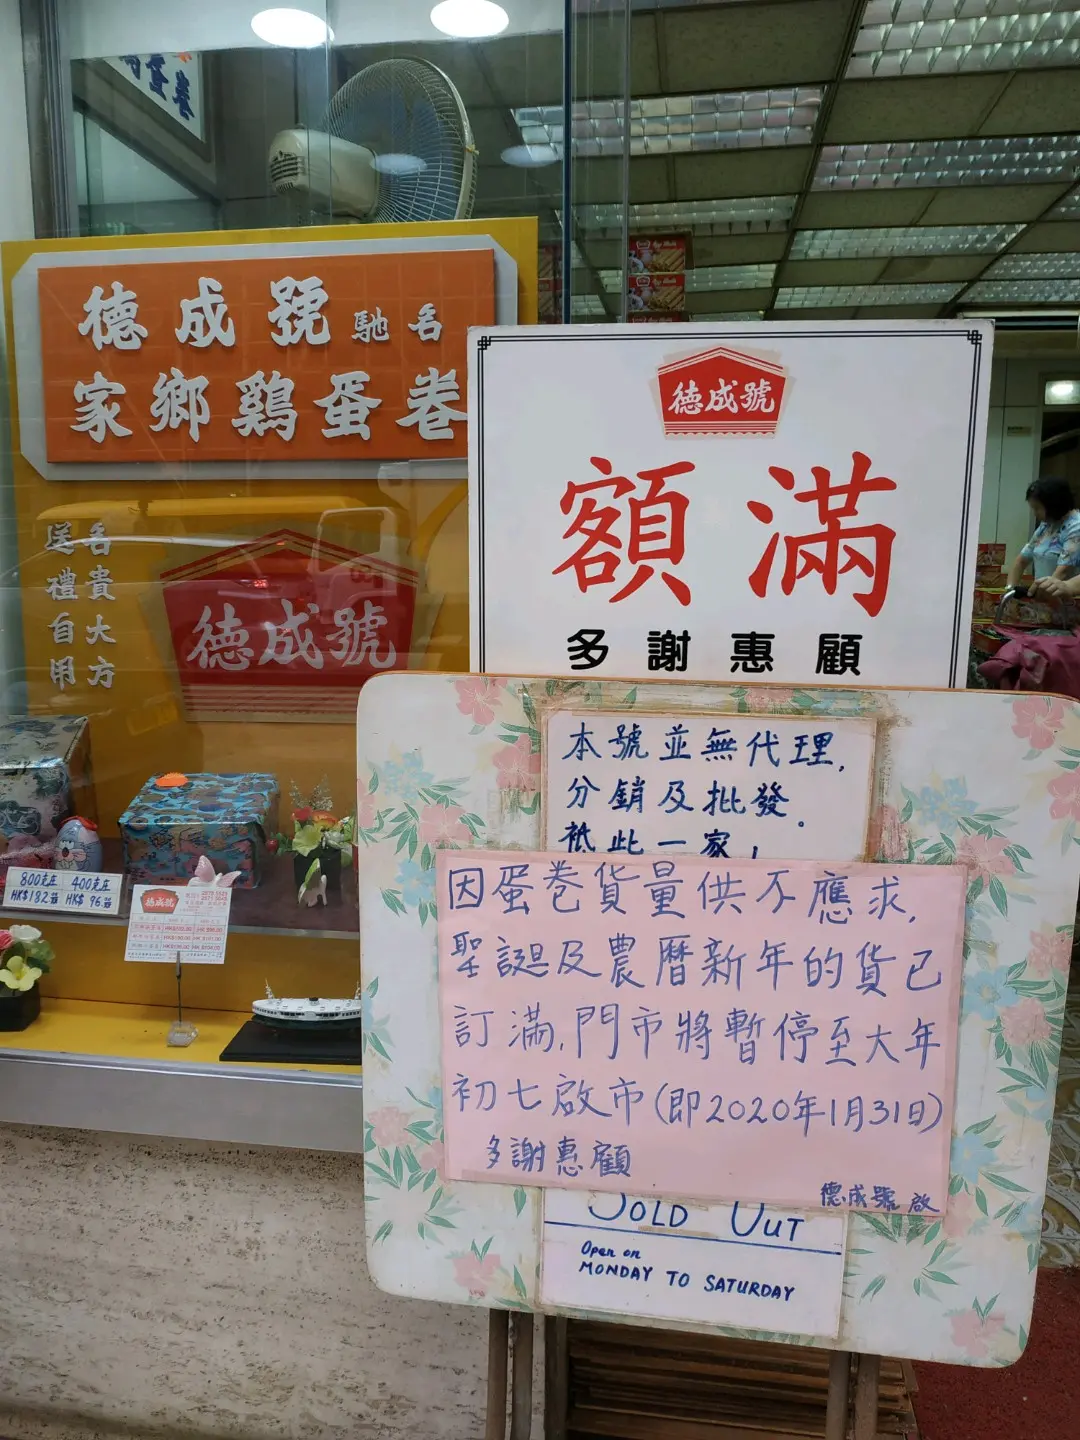 德成號馳名
家鄉鷄蛋卷
名貴大方
送禮自用
德成號
800克庄 400克庄
HK$182 HK$ 96
德成號
德成號
額滿
多謝惠顧
本號並無代理,
分銷及批發.
祗此一家,
因蛋卷貨量供不應求,
聖誕及農曆新年的貨已
訂滿,門市將暫停至大年
初七啟市(即2020年1月31日)
多謝惠顧
德成號 啟
SOLD OUT
Open on
MONDAY TO SATURDAY